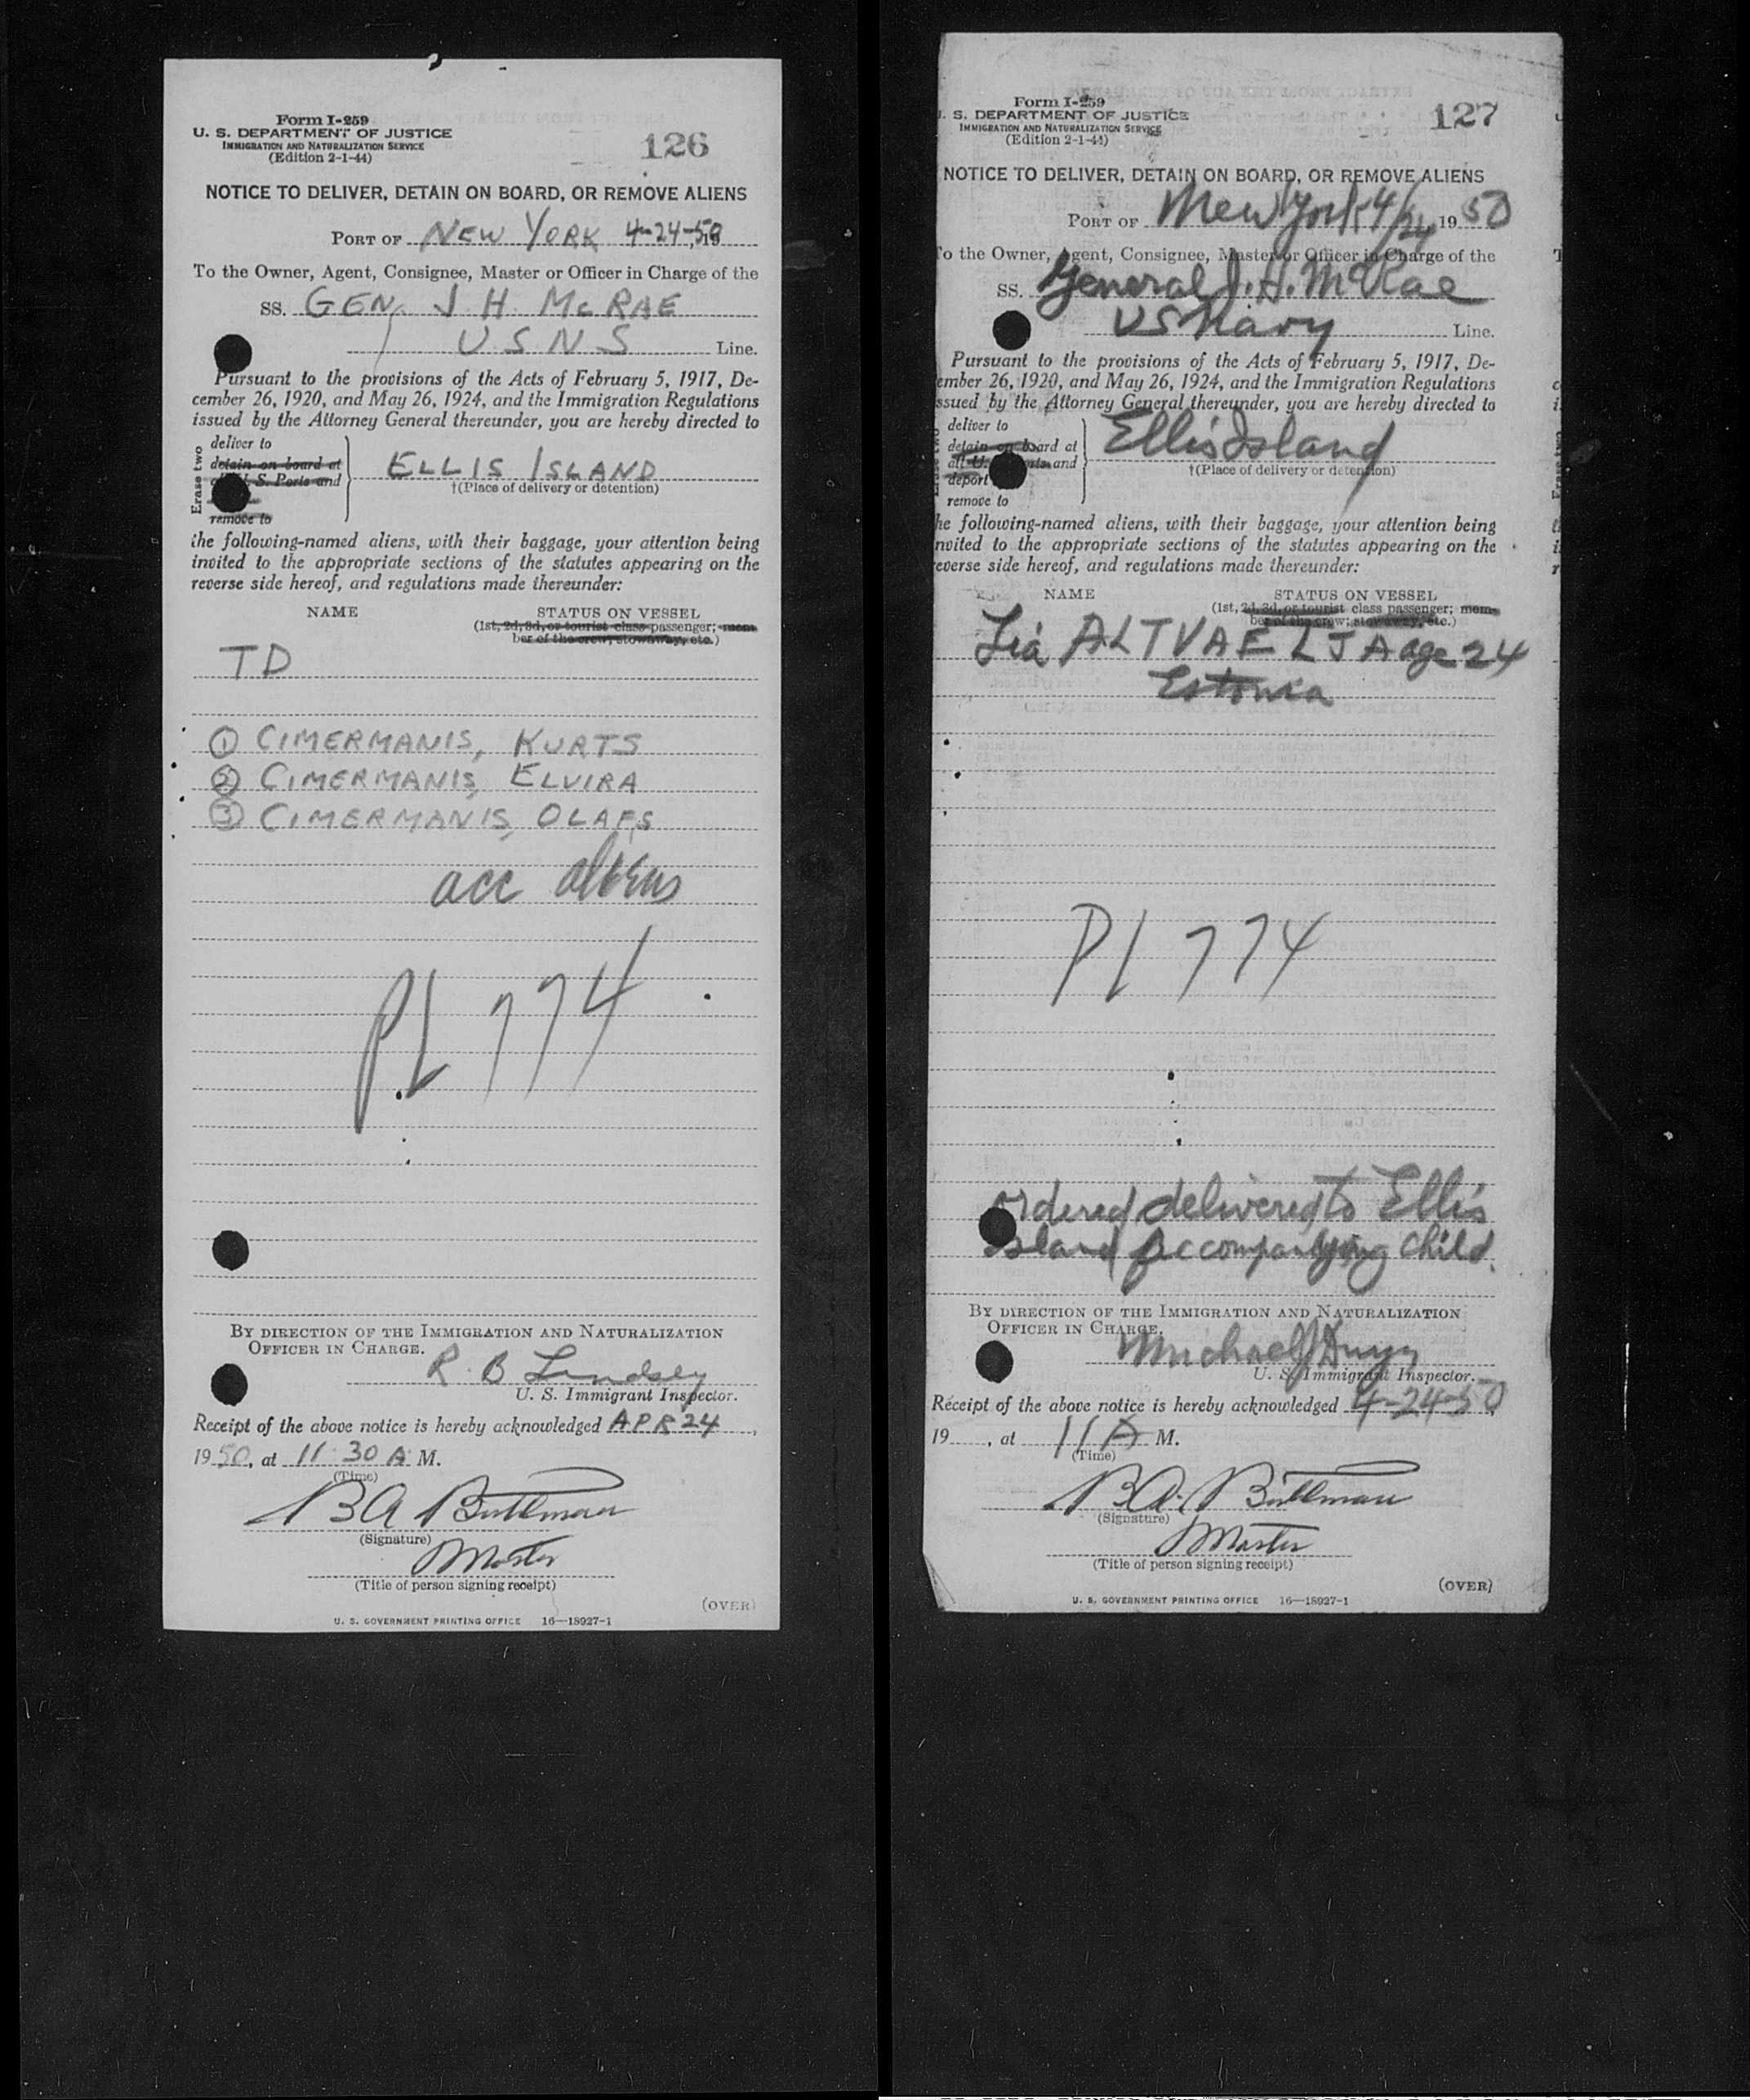 Form I-259
U. S. DEPARTMENT OF JUSTICE
IMMIGRATION AND NATURALIZATION SERVICE
(Edition 2-1-44)
126
NOTICE TO DELIVER, DETAIN ON BOARD, OR REMOVE ALIENS
PORT OF NEW YORK 4-24-50, 19
To the Owner, Agent, Consignee, Master or Officer in Charge of the
SS. GEN. J H McRAE
U S N S Line.
Pursuant to the provisions of the Acts of February 5, 1917, De-
cember 26, 1920, and May 26, 1924, and the Immigration Regulations
issued by the Attorney General thereunder, you are hereby directed to
Erase two
deliver to
detain on board at
S. Ports and
remove to
ELLIS ISLAND
†(Place of delivery or detention)
the following-named aliens, with their baggage, your attention being
invited to the appropriate sections of the statutes appearing on the
reverse side hereof, and regulations made thereunder:
NAME STATUS ON VESSEL
(1st, 2d, 3d, or tourist class passenger; mem-
ber of the crew; stowaway, etc.)
TD
① CIMERMANIS, KURTS
② CIMERMANIS, ELVIRA
③ CIMERMANIS, OLAFS
acc aliens
PL 774
BY DIRECTION OF THE IMMIGRATION AND NATURALIZATION
OFFICER IN CHARGE.
R B Lindsey
U. S. Immigrant Inspector.
Receipt of the above notice is hereby acknowledged APR 24,
1950, at 11 30 A M.
(Time)
B A
(Signature)
Master
(Title of person signing receipt)
(OVER)
U. S. GOVERNMENT PRINTING OFFICE 16—18927-1
Form I-259
. S. DEPARTMENT OF JUSTICE
IMMIGRATION AND NATURALIZATION SERVICE
(Edition 2-1-44)
127
NOTICE TO DELIVER, DETAIN ON BOARD, OR REMOVE ALIENS
PORT OF New York 4/24 1950
o the Owner, Agent, Consignee, Master or Officer in Charge of the
SS. General J. H. McRae
US Navy Line.
Pursuant to the provisions of the Acts of February 5, 1917, De-
ember 26, 1920, and May 26, 1924, and the Immigration Regulations
ssued by the Attorney General thereunder, you are hereby directed to
deliver to
detain on board at
all U. orts and
deport
remove to
Ellis Island
†(Place of delivery or detention)
he following-named aliens, with their baggage, your attention being
nvited to the appropriate sections of the statutes appearing on the
everse side hereof, and regulations made thereunder:
NAME STATUS ON VESSEL
(1st, 2d, 3d, or tourist class passenger; mem-
ber of the crew; stowaway, etc.)
Lia ALTVAELJA age 24
Estonia
PL 774
ordered delivered to Ellis
Island Accompanying child.
BY DIRECTION OF THE IMMIGRATION AND NATURALIZATION
OFFICER IN CHARGE.
Michael J
U. S. Immigrant Inspector.
Receipt of the above notice is hereby acknowledged 4-24-50,
19, at 11 A M.
(Time)
B.A.
(Signature)
Master
(Title of person signing receipt)
(OVER)
U. S. GOVERNMENT PRINTING OFFICE 16—18927-1